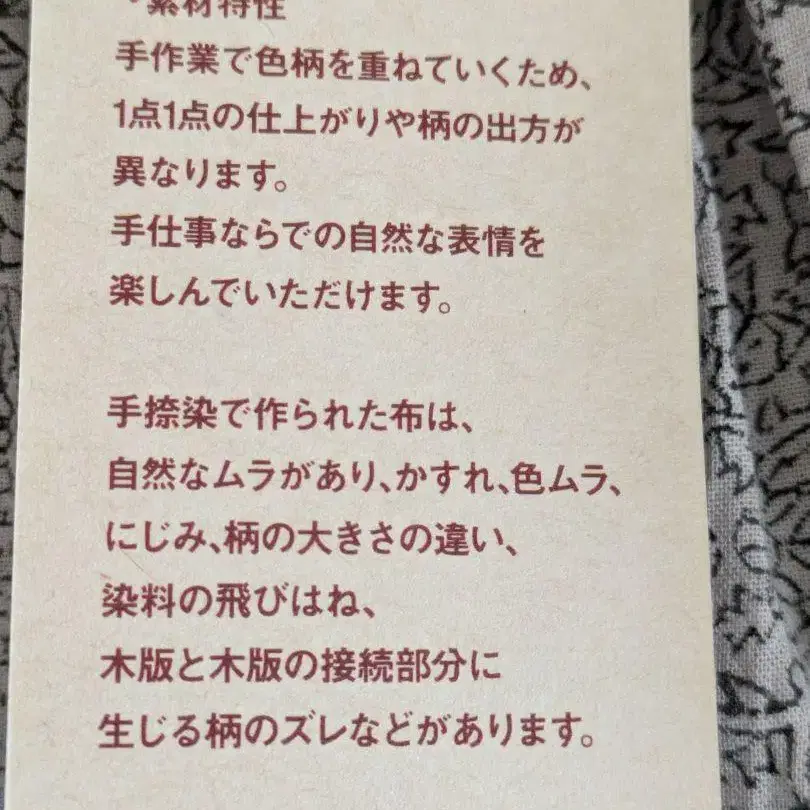 ・素材特性
手作業で色柄を重ねていくため、
1点1点の仕上がりや柄の出方が
異なります。
手仕事ならでの自然な表情を
楽しんでいただけます。
手捺染で作られた布は、
自然なムラがあり、かすれ、色ムラ、
にじみ、柄の大きさの違い、
染料の飛びはね、
木版と木版の接続部分に
生じる柄のズレなどがあります。